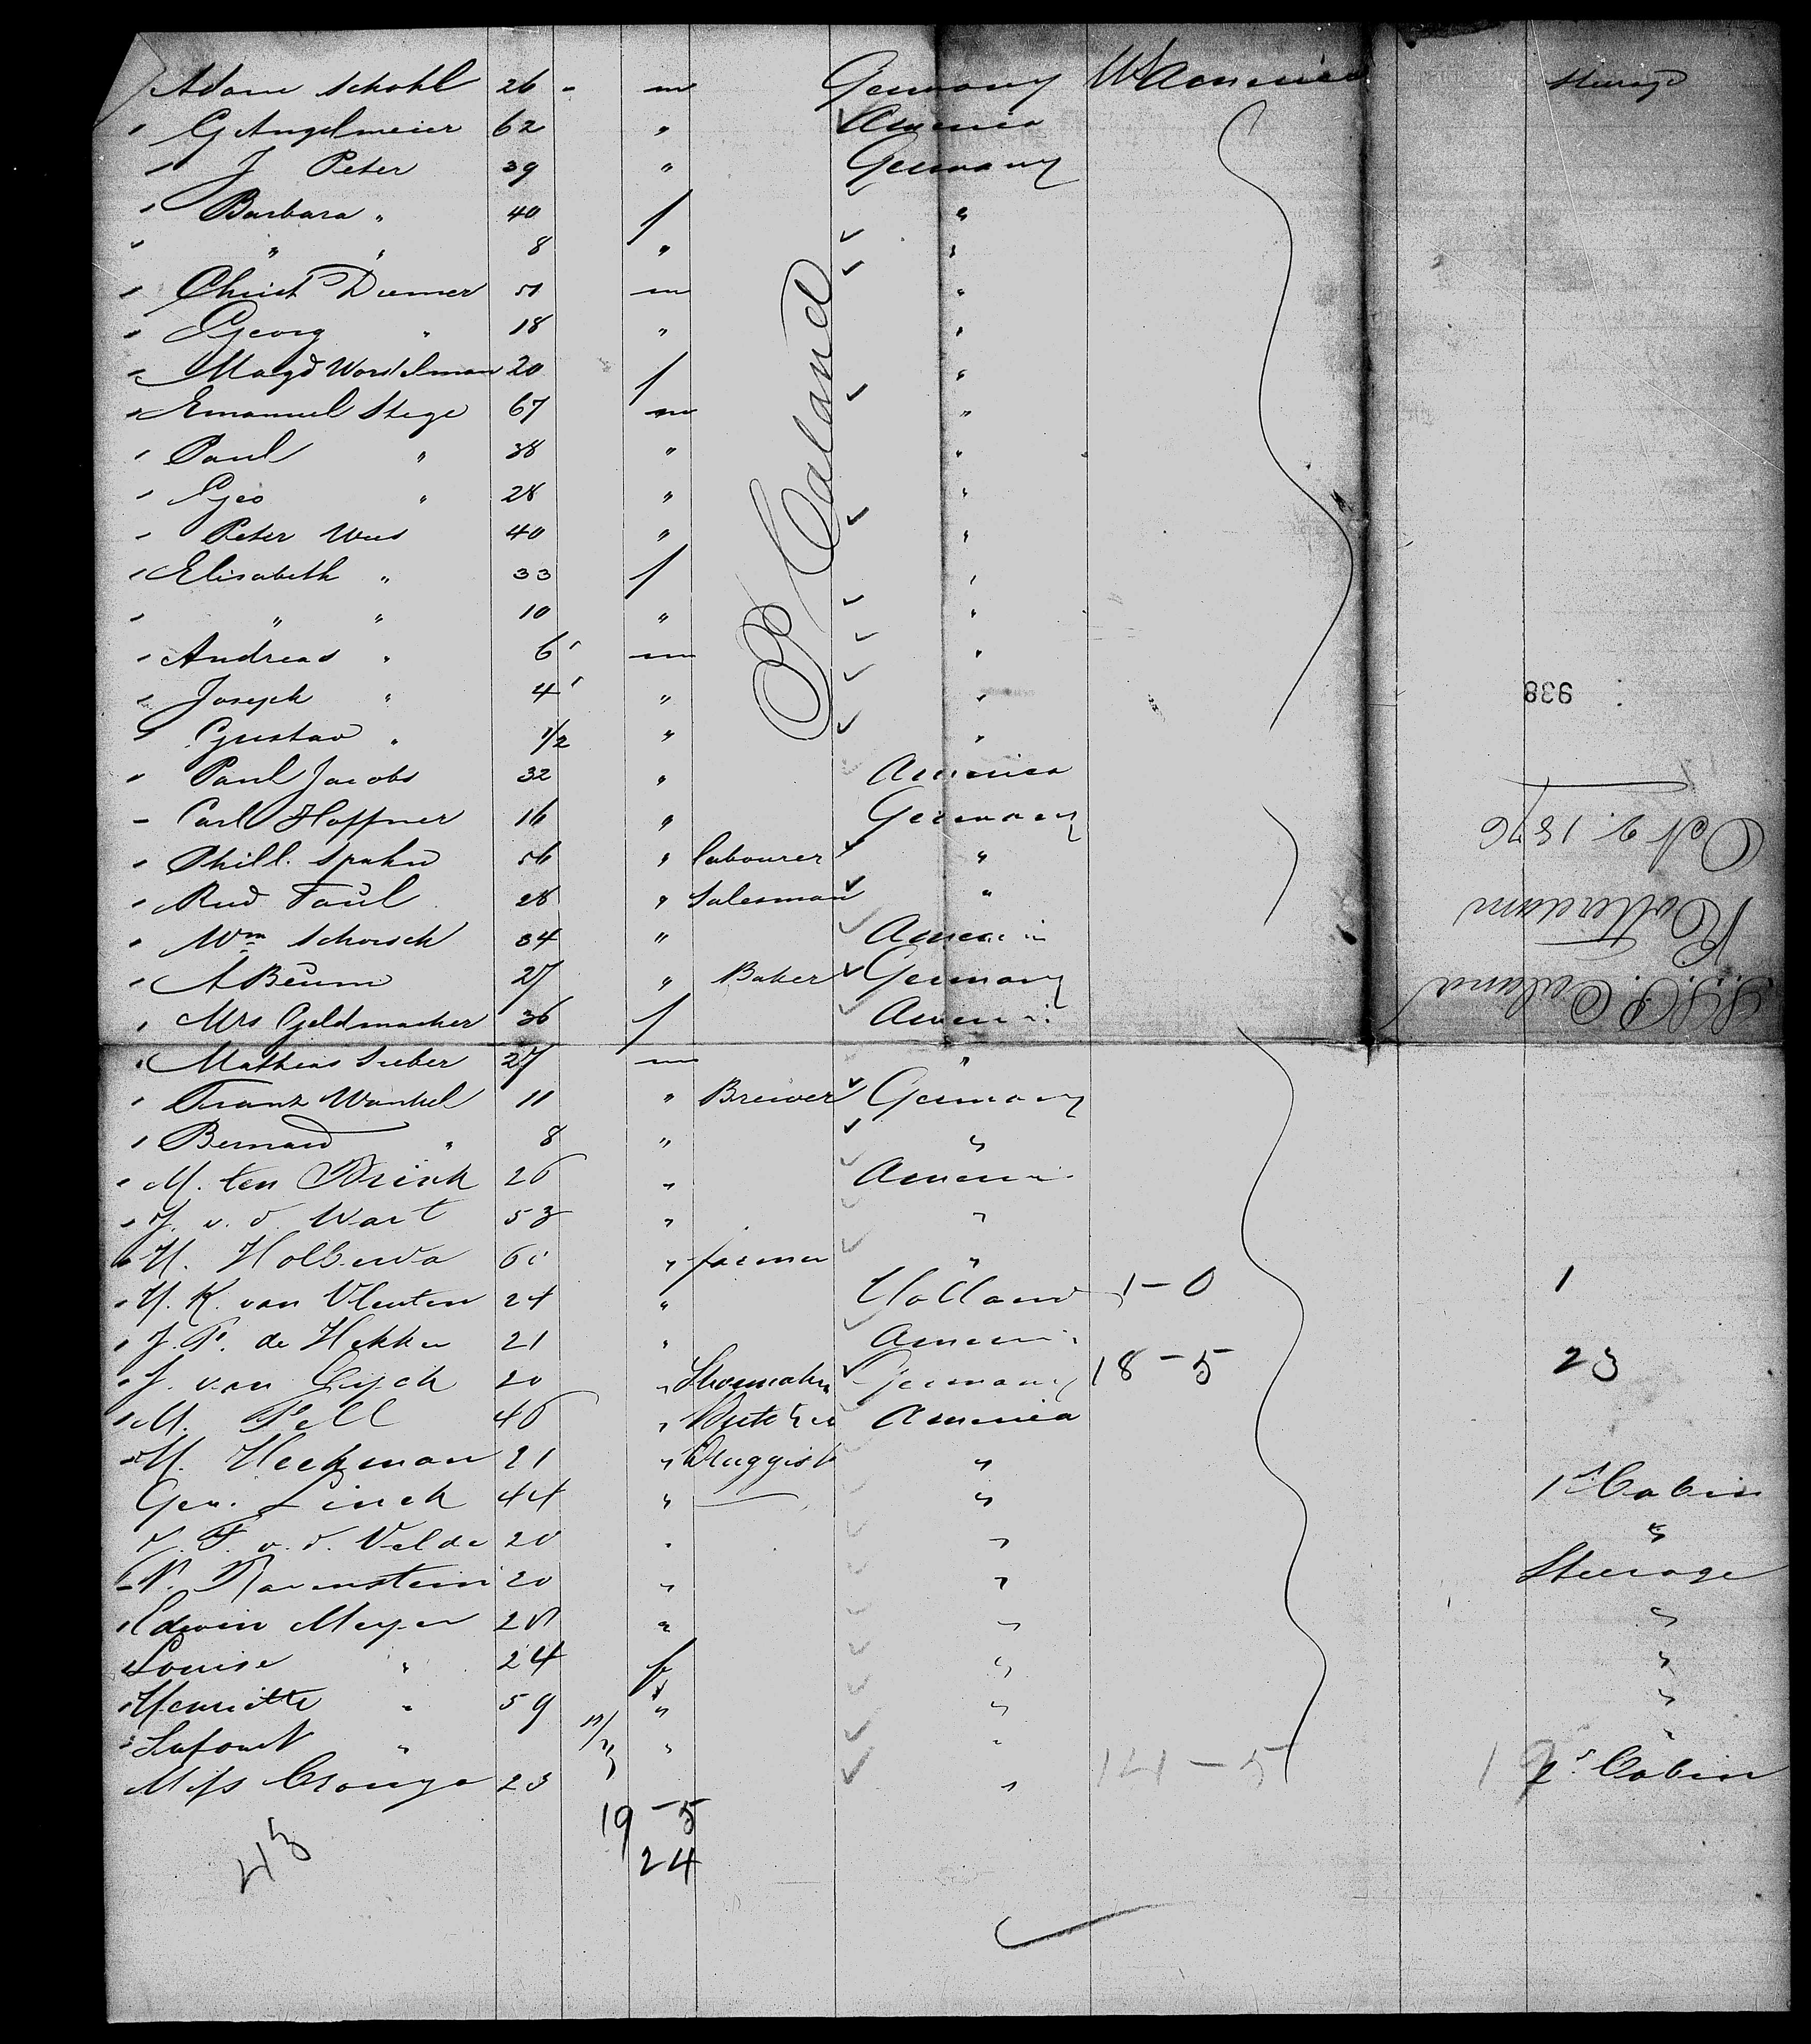 Adam Schohl 26 - m Germany W America Steerage
" G Angelmeier 62 " America
" J Peter 39 " Germany
" Barbara " 40 f "
" " " 8 " "
" Christ Diemer 51 m "
" Georg " 18 " "
" Magd Worstelman 20 f "
" Emanuel Stege 67 m "
" Paul " 38 " "
" Geo " 28 " "
" Peter Wees 40 " "
" Elisabeth " 33 f "
" " " 10 " "
" Andreas " 6 m "
" Joseph " 4 " "
" Gustav " 1/2 " "
" Paul Jacobs 32 " America
" Carl Hoffner 16 " Germany
" Phill. Spahn 56 " labourer "
" Rud Faul 28 " Salesman "
" Wm Schorsch 34 " America
" A Beum 27 " Baker Germany
" Mrs Geldmacher 36 f America
" Mathias Sieber 27 m "
" Franz Wankel 11 " Brewer Germany
" Bernard " 8 " "
" M. ten Brink 26 " America
" J. v. d. Wart 53 " "
" H. Holsewa " farmer "
" H. K. van Vleuten 24 " Holland 1-0 1
" J. P. de Hekker 21 " America
" J. van Gyck 20 " Shoemaker Germany 18-5 23
" M. Pell 46 " Butcher America
" H. Heekman 21 " Druggist "
Geo. Linck 44 " " 1s Cabin
F. v. d. Velde 20 " " "
" N. Ravenstein 20 " " Steerage
" Edwin Meyer 28 " " "
" Louise " 24 f " "
" Henriette " 59 " " "
" Infant " " " "
Miss Crouya 23 " 14-5 19 Cabin
19-5
24
43
P Caland
938
S.S. P. Caland
Rotterdam
Oct 2. 1876